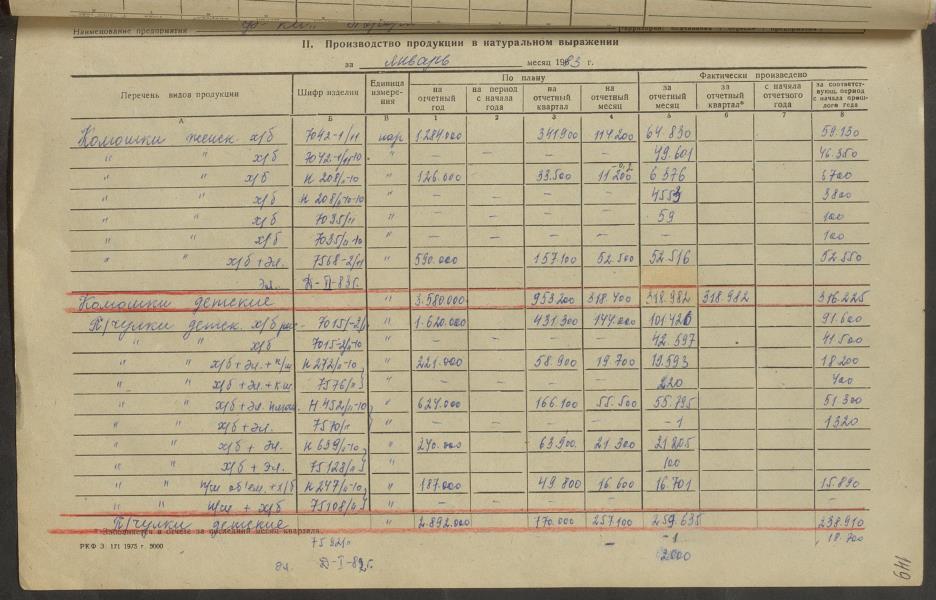 Наименование предприятия
II. Производство продукции в натуральном выражении
за январь месяц 1983 г.
Перечень видов продукции Шифр изделия Единица измерения По плану Фактически произведено
на отчетный год на период с начала года на отчетный квартал на отчетный месяц за отчетный месяц за отчетный квартал* с начала отчетного года за соответствующ. период с начала прошлого года
А Б В 1 2 3 4 5 6 7 8
х/б 7042-1/11 пар 1.284.000 341.900 114.200 64.830 59.130
" " х/б " — — — — 49.601 46.350
" " х/б Н 208/11-10 " 126.000 33.500 11.200 6 376 6700
" " х/б Н 208/11-10-10 " — — — — 4553 3800
" " х/б 7035/11 " — — — — 59 100
" " х/б 7035/11-10 " — — — — — 100
" " х/б+эл. 7568-2/11 " 590.000 157.100 52.500 52.516 52.550
эл. II-83г.
детские " 3.580.000 953200 318.400 318.982 318.982 316.225
П/чулки детск. х/б 7015/-2/ " 1.620.000 431.300 144.000 101.426 91.600
" " х/б " — — — — 42.597 41.500
" " х/б+эл.+п/ш Н 272/11-10 " 221.000 58.900 19.700 19.593 18200
" " х/б+эл.+к.ш. 7576/ " — — — — 220 400
" " х/б+эл. Н 452/11-10 " 624.000 166.100 55.500 55.195 51.300
" " х/б+эл. 7570/11 " — — — — -1 1320
" " х/б+эл. Н 639/11-10 " 240.000 63.900 21.300 21 805
" " х/б+эл. 75128/ " 100
" " п/ш об'ем.+х/б Н 247/11-10 " 187.000 49.800 16.600 16.701 15.890
" " п/ш + х/б 75108/ " — — — — —
П/чулки детские " 2.892.000 170.000 257.100 257.635 238.910
* Заполняется в отчете за последний месяц квартала.
РКФ З. 171 1975 г. 5000
— -1 18.700
эл. -I-82г. 2000
149